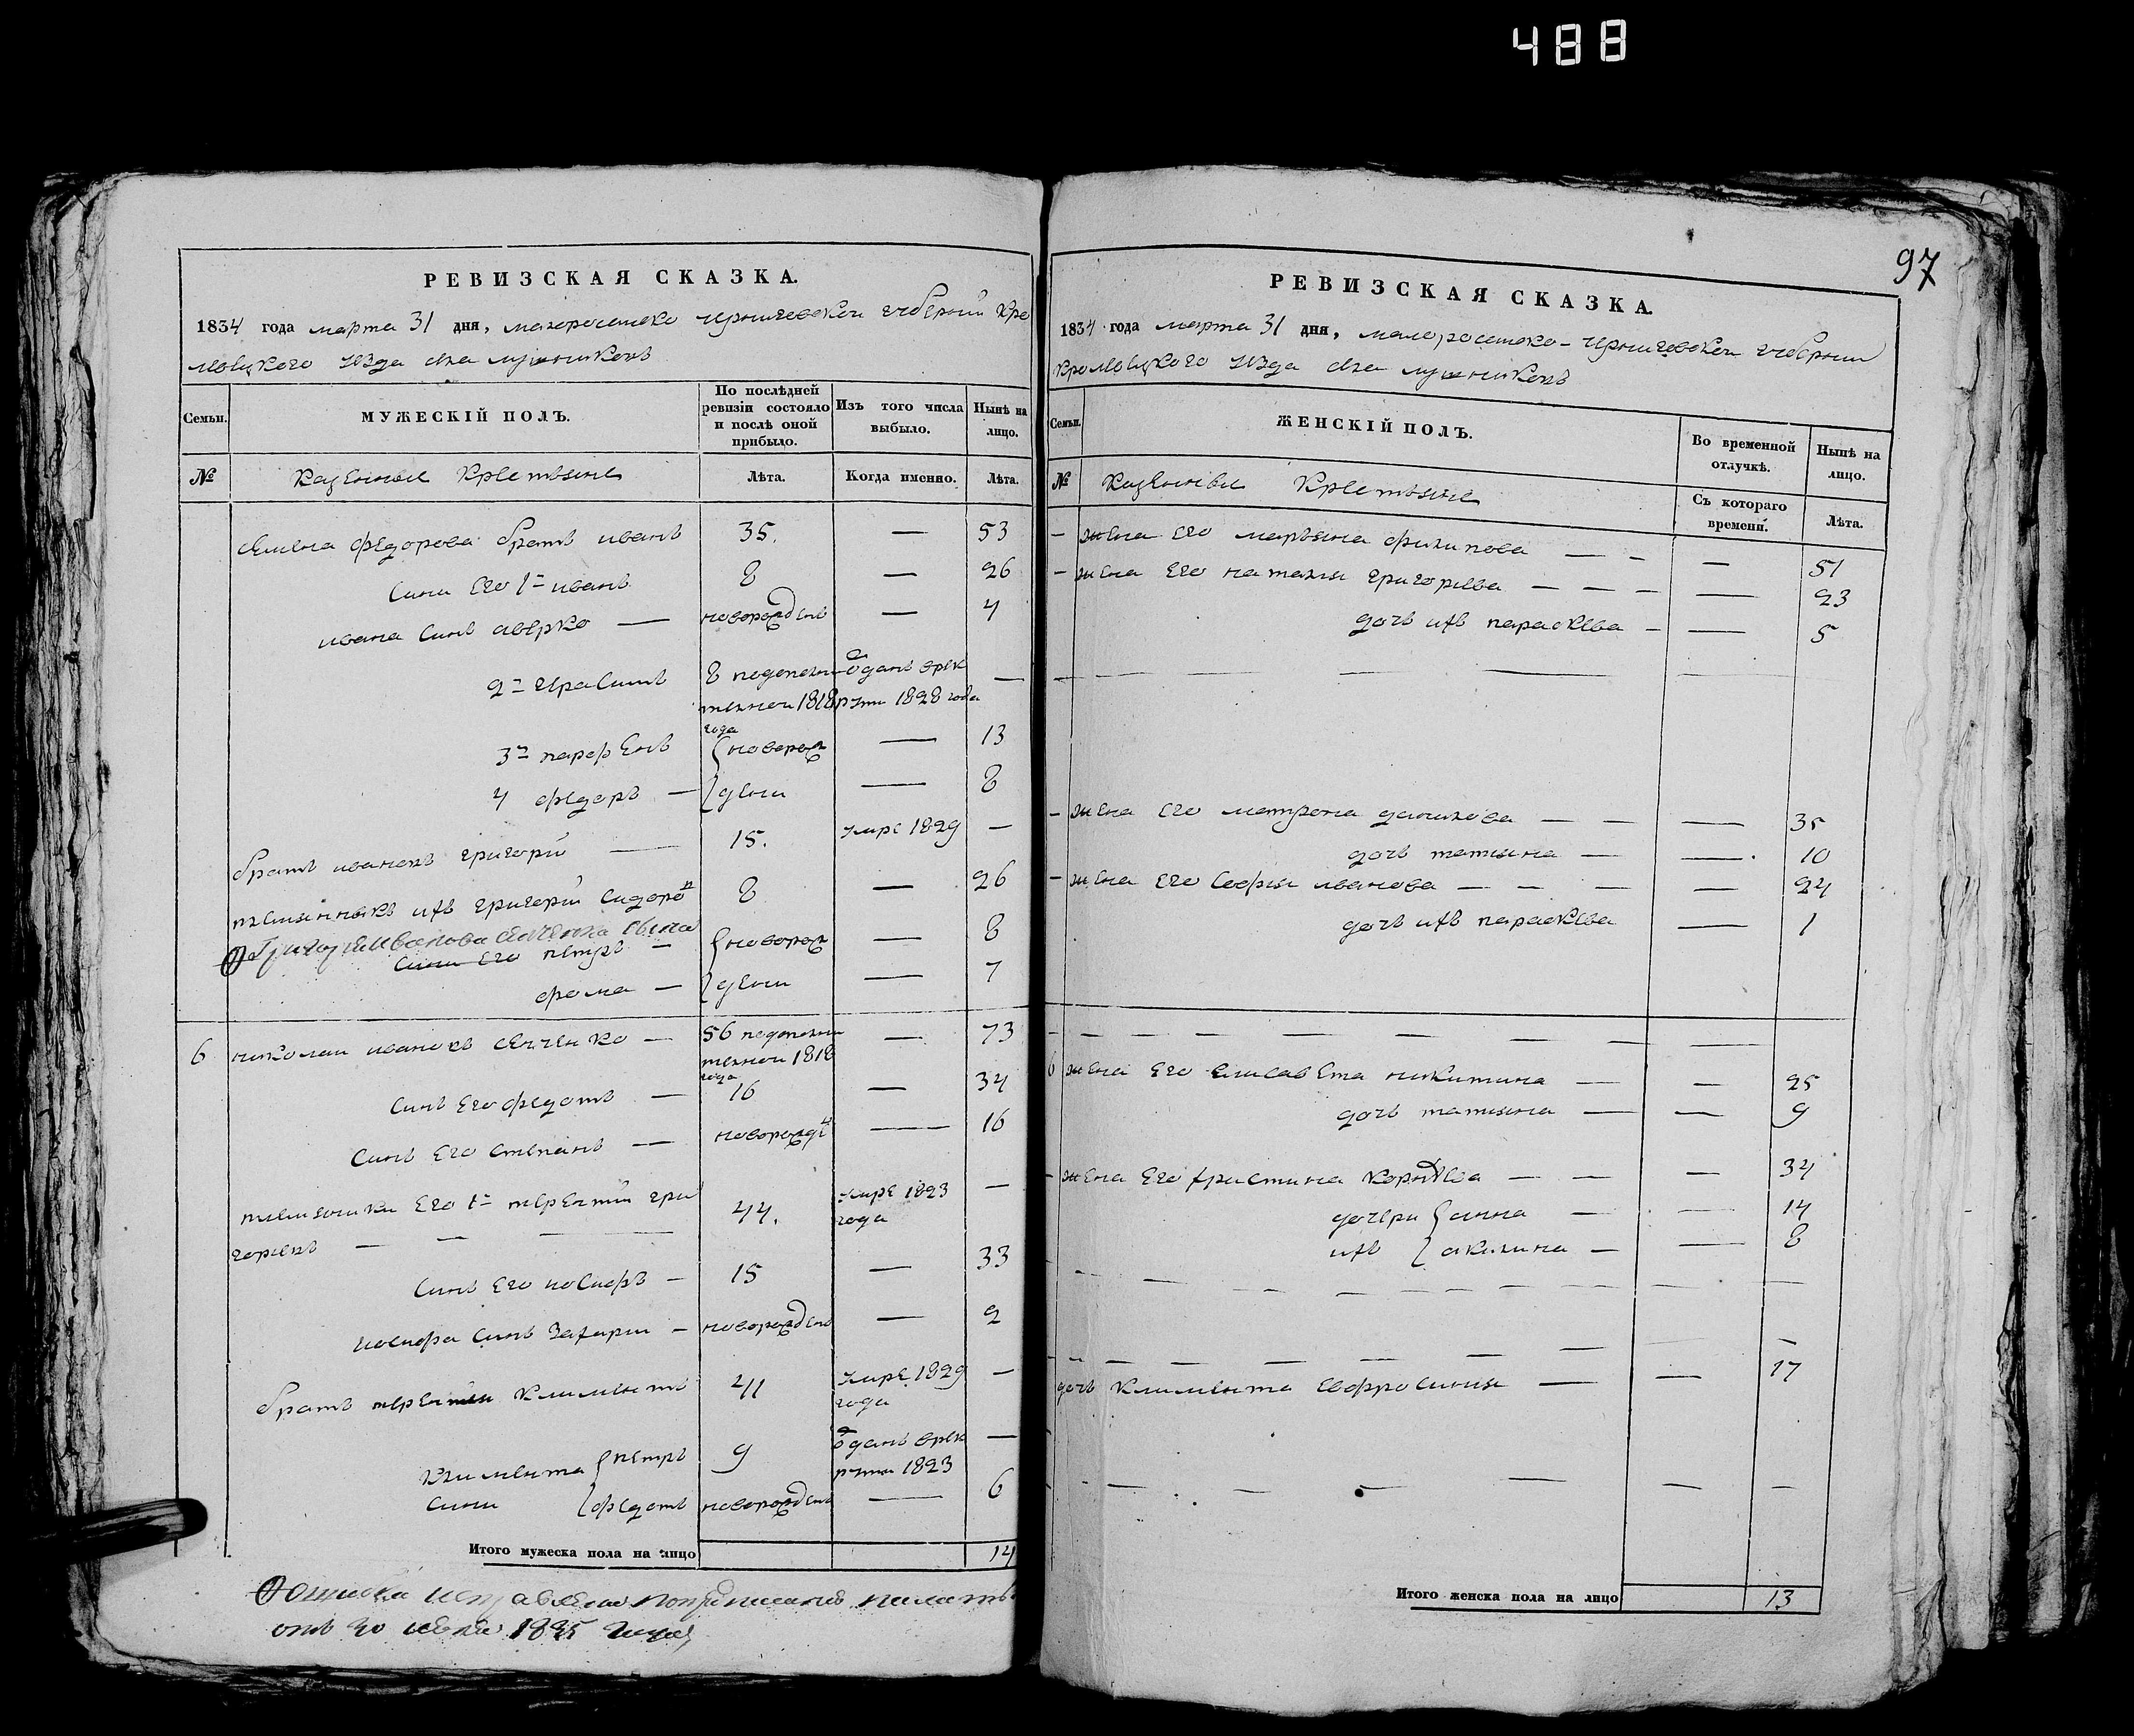 488
РЕВИЗСКАЯ СКАЗКА.
1834 года марта 31 дня, малоросийско черниговской губернии Кро
левецкого уезда села
Семьи. МУЖЕСКІЙ ПОЛЪ. По послѣдней ревизіи состояло и послѣ оной прибыло. Изъ того числа выбыло. Нынѣ на лицо.
№ Казенные Крестьяне Лѣта. Когда именно. Лѣта.
семена федорова братъ иванъ 35. — 53
сини его 1й иванъ 8 — 26
ивана синъ аверко — новорожденъ — 4
2й герасимъ 8 поденолни оданъ врек —
тельной 1818 рути 1828 года
года
3й парфенъ { новорож — 13
4 федоръ — { дени — 8
братъ ивановъ григорій — 15. умре 1829 —
племянникъ ихъ григорій сидоро 8 — 26
Григорія Иванова сына
сини его петръ — { новорож — 8
фома — { дени — 7
6 николаи ивановъ сенченко — 56 пополни — 73
тельной 1818
года
синъ его федотъ — 16 — 34
синъ его степанъ — новорожде — 16
племяники его 1й терентій гри 44. умре 1823 —
горьевъ — — — — года
синъ его иосифъ — 15 — 33
иосифа синъ захарии — новорожденъ — 2
братъ терентия климентъ 41 умре 1829 —
года
климента { петръ 9 оданъ врек —
рути 1823
сини { федотъ новорожденъ — 6
Итого мужеска пола на лицо 14
ошибка исправлена по предписанию палаты
отъ 20 1835 года
97
РЕВИЗСКАЯ СКАЗКА.
1834 года марта 31 дня, малоросийско-черниговской губернии
кролевецкого уезда села
Семьи. ЖЕНСКІЙ ПОЛЪ. Во временной отлучкѣ. Нынѣ на лицо.
№ Казенные Крестьяне Съ котораго времени. Лѣта.
— жена его марьяна филипова — — — 51
— жена его наталия григорьева — — — — 23
дочь ихъ парасκева — — 5
— жена его матрена данилова — — — 35
дочь татияна — — 10
— жена его софия иванова — — — — 24
дочь ихъ параскева — 1
6 жена его елисавета никитина — — 25
дочь татияна — — 9
— жена его христина корнѣева — — — 34
дочери { анна — — 14
ихъ { акилина — — 8
дочь климента евфросиния — — 17
Итого женска пола на лицо 13